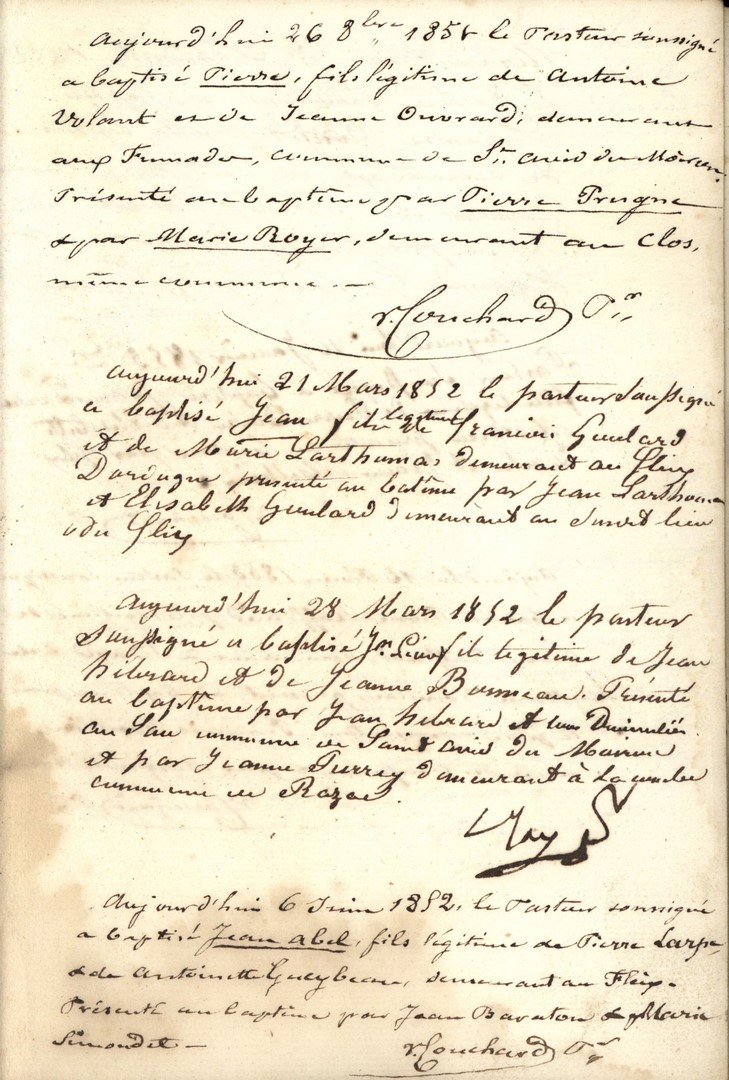 Aujourd'hui 26 8bre 1851 le Pasteur soussigné
a baptisé Pierre, fils légitime de Antoine
Volant et de Jeanne Ouvrard, demeurant
aux Fumades, commune de St. avid du Moiron.
Présenté au baptême par Pierre Prugne
& par Marie Royer, demeurant au Clos,
même commune. —
r. Couchard Pr
Aujourd'hui 21 Mars 1852 le pasteur Soussigné
a baptisé Jean fils legitime de francois Goulard
et de Marie Larthomas demeurant au fleix
Dordogne presenté au batême par Jean Larthomas
et Elisabeth Goulard demeurant au susdit lieu
du fleix
Aujourd'hui 28 Mars 1852 le pasteur
Soussigné a baptisé Jn fils legitime de Jean
hibrard et de Jeanne Bonneau. Présenté
au baptême par Jean hibrard et
au commune de Saint avid du Moiron
et par Jeanne demeurant à
commune de Razac.
Hay
Aujourd'hui 6 Juin 1852, le Pasteur soussigné
a baptisé Jean abel, fils légitime de Pierre Larpe
& de Antoinette Gueybeau, demeurant au Fleix.
Présenté au baptême par Jean Baraton & Marie
Simondet —
r. Couchard Pr